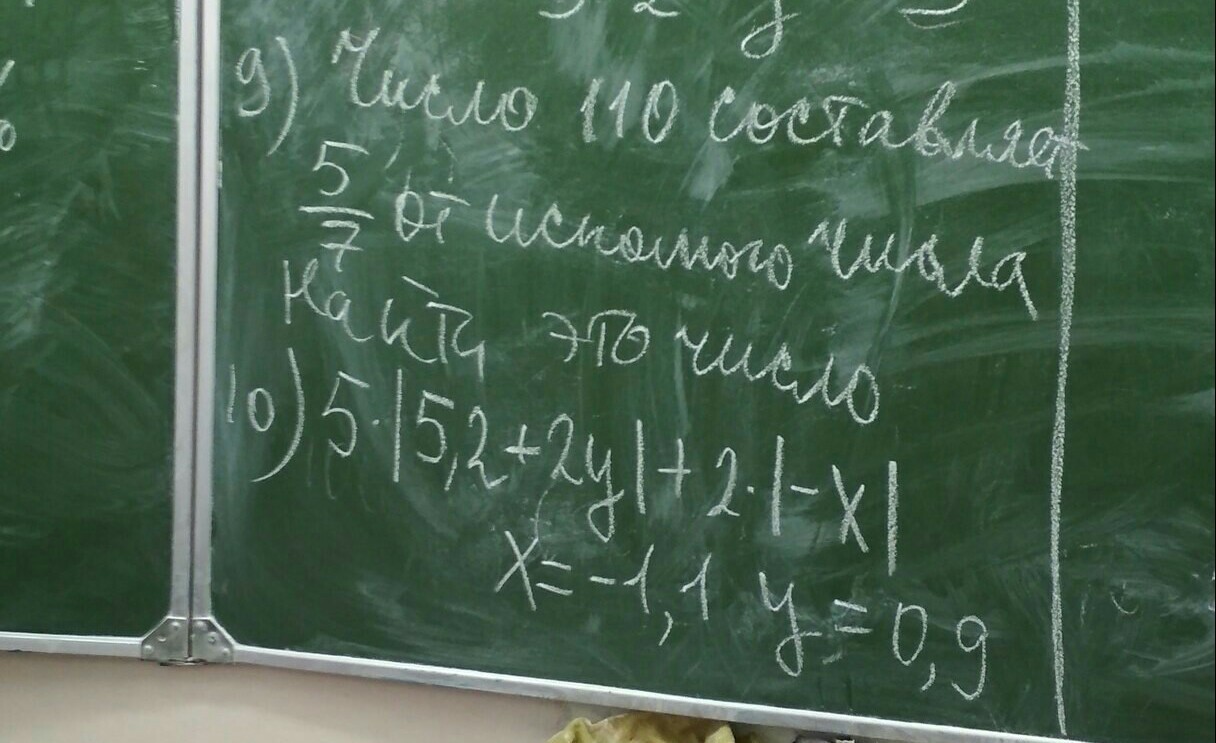 9) Число 110 составляет
5/7 от искомого числа
Найти это число
10) 5·|5,2+2y|+2·|-x|
x=-1,1 y=0,9